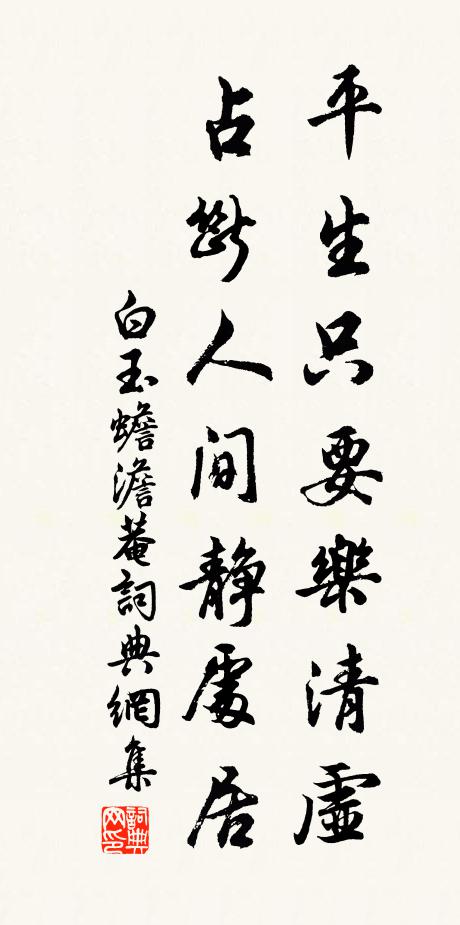 平生只要樂清虛
占斷人間靜處居
白玉蟾澹菴詞典網集
詞典網印